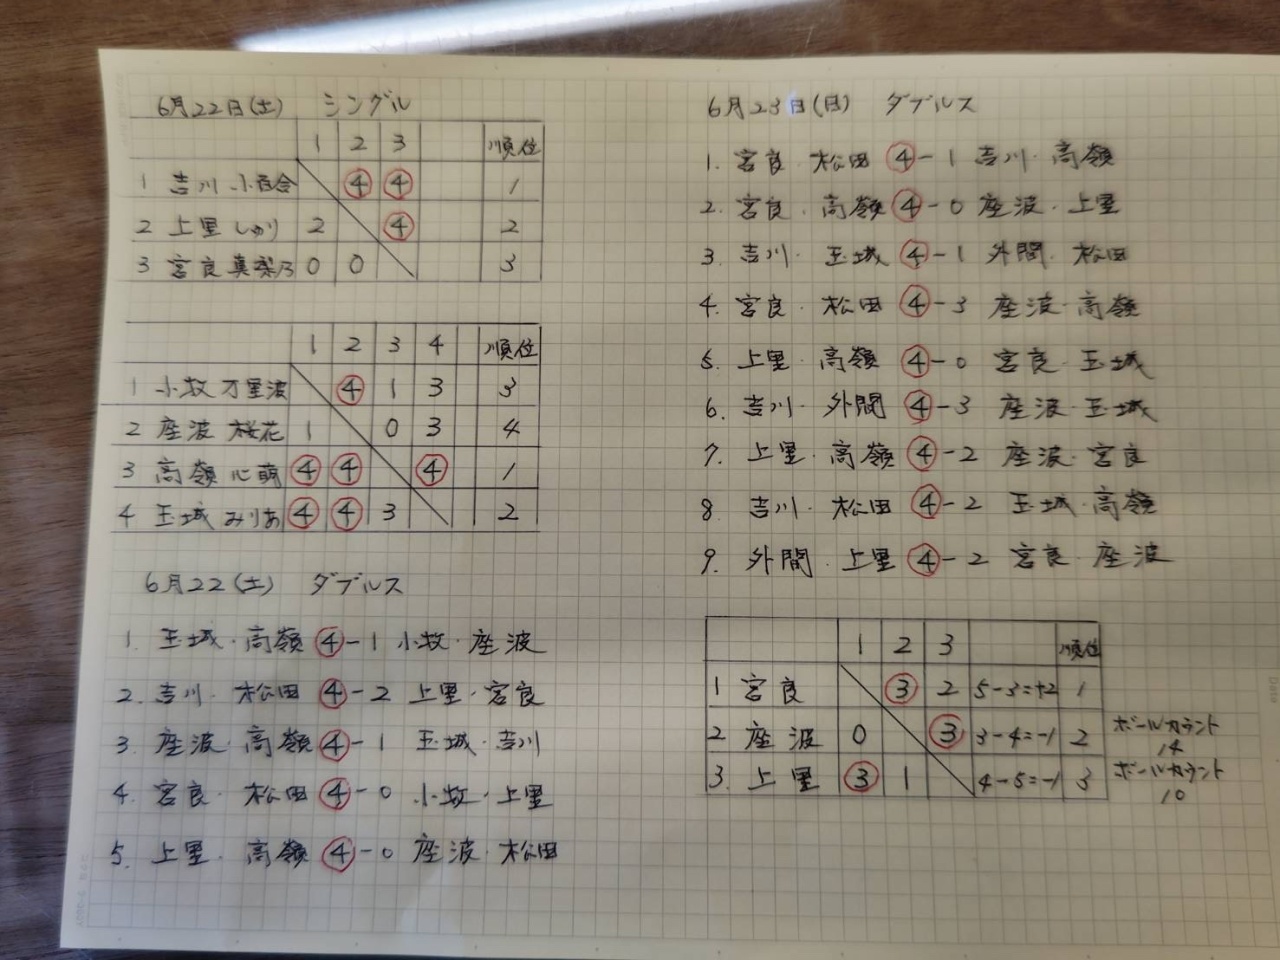 6月22日(土) シングル
1 2 3 順位
1 吉川 小百合 ④ ④ 1
2 上里 しゅり 2 ④ 2
3 宮良 0 0 3
1 2 3 4 順位
1 小牧 万里波 ④ 1 3 3
2 座波 桜花 1 0 3 4
3 高嶺 心萌 ④ ④ ④ 1
4 玉城 みりあ ④ ④ 3 2
6月22(土) ダブルス
1. 玉城・高嶺 ④-1 小牧・座波
2. 吉川・松田 ④-2 上里・宮良
3. 座波・高嶺 ④-1 玉城・吉川
4. 宮良・松田 ④-0 小牧・上里
5. 上里・高嶺 ④-0 座波・松田
6月23日(日) ダブルス
1. 宮良・松田 ④-1 吉川・高嶺
2. 宮良・高嶺 ④-0 座波・上里
3. 吉川・玉城 ④-1 外間・松田
4. 宮良・松田 ④-3 座波・高嶺
5. 上里・高嶺 ④-0 宮良・玉城
6. 吉川・外間 ④-3 座波・玉城
7. 上里・高嶺 ④-2 座波・宮良
8. 吉川・松田 ④-2 玉城・高嶺
9. 外間・上里 ④-2 宮良・座波
1 2 3 順位
1 宮良 ③ 2 5-3=+2 1
2 座波 0 ③ 3-4=-1 2 ボールカウント
14
3. 上里 ③ 1 4-5=-1 3 ボールカウント
10